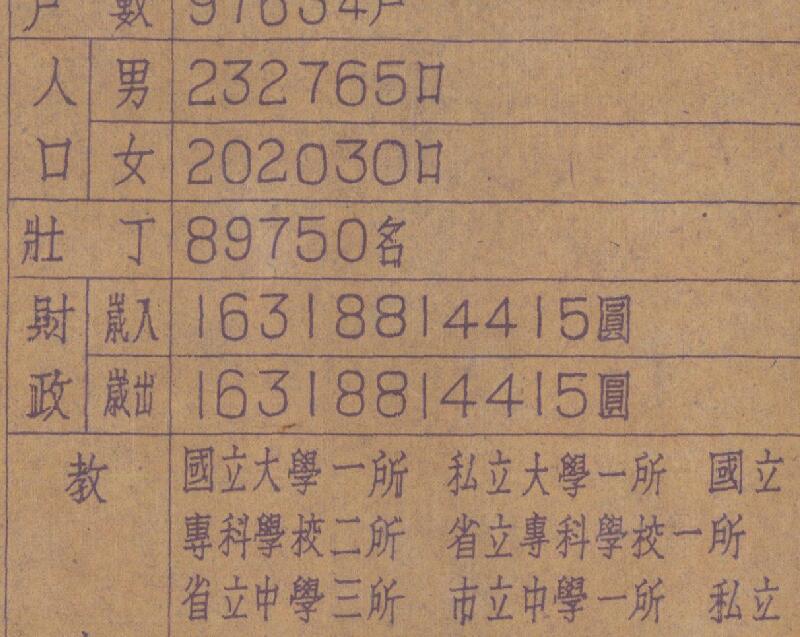 戶數 97634戶
人口 男 232765口
女 202030口
壯丁 89750名
財政 歲入 163188144415圓
歲出 163188144415圓
教 國立大學一所 私立大學一所 國立
專科學校二所 省立專科學校一所
省立中學三所 市立中學一所 私立